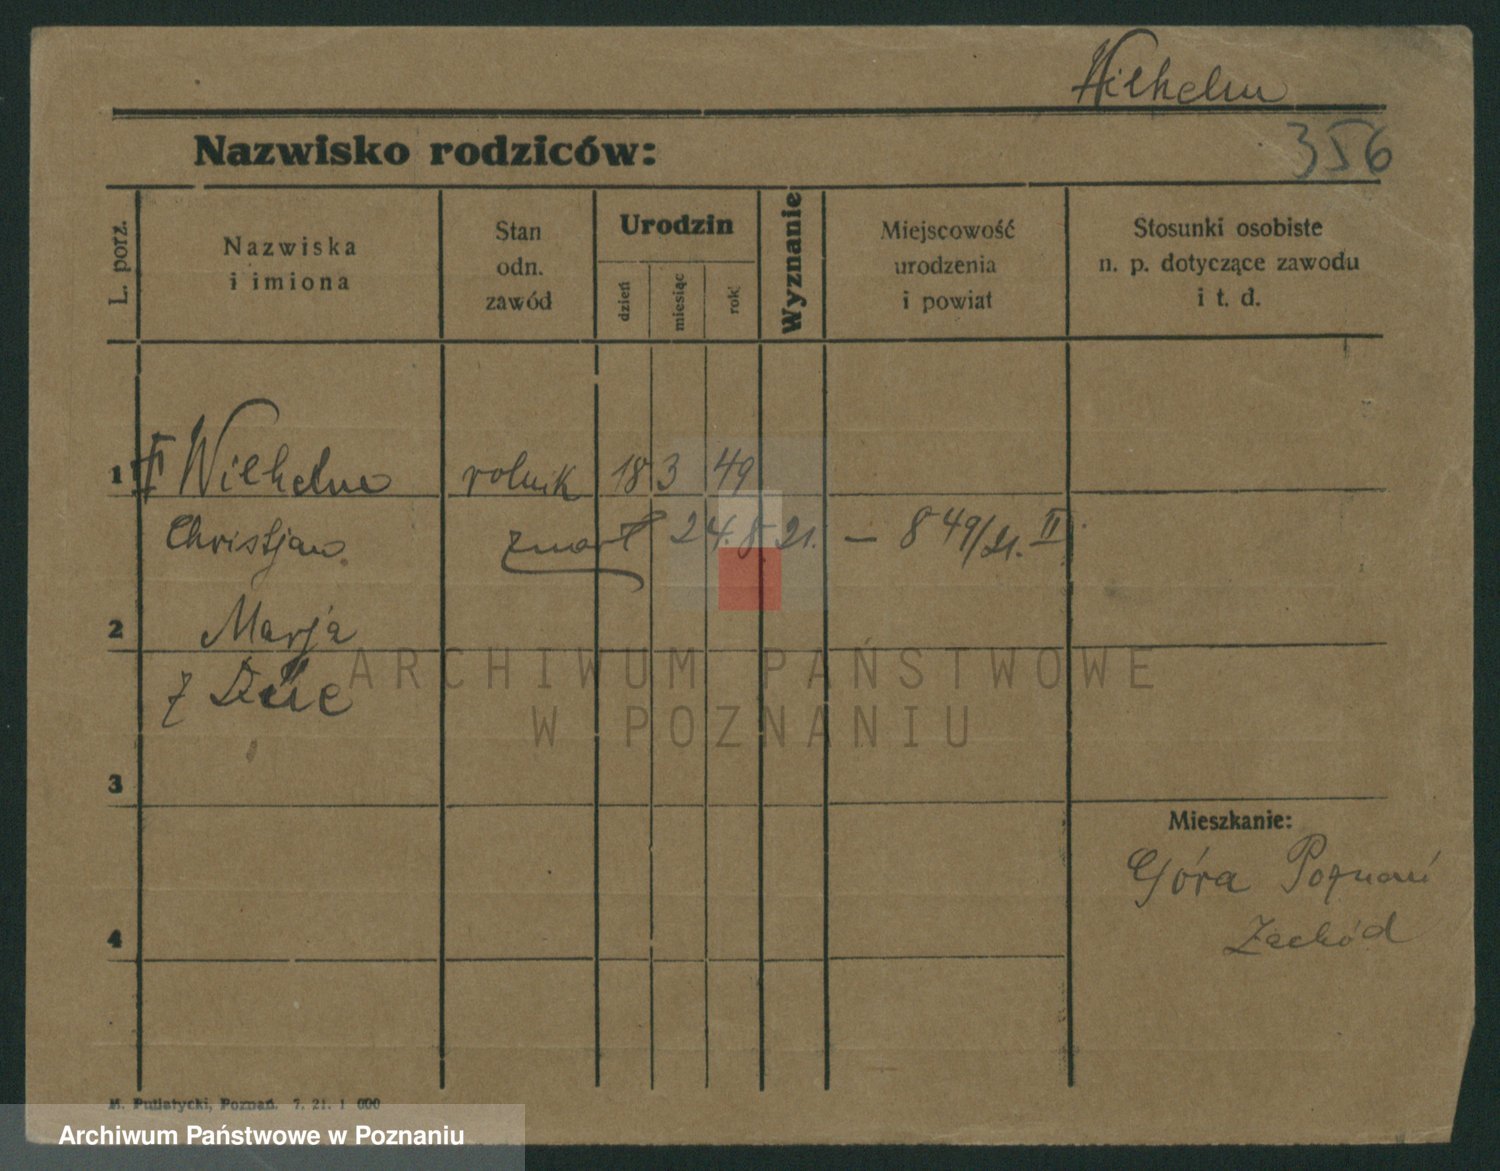 Wilhelm
Nazwisko rodziców:
356
L. porz.
Nazwiska
i imiona
Stan
odn.
zawód
Urodzin
dzień
miesiąc
rok
Wyznanie
Miejscowość
urodzenia
i powiat
Stosunki osobiste
n. p. dotyczące zawodu
i t. d.
1 Wilhelm rolnik 18 3 49
Christjan zmarł 24.8.21. — 849/21. II
2 Marja
z
3
Mieszkanie:
Góra Poznań
Zachód
4
M. Putiatycki, Poznań. 7. 21. 1 000
ARCHIWUM PAŃSTWOWE
W POZNANIU
Archiwum Państwowe w Poznaniu